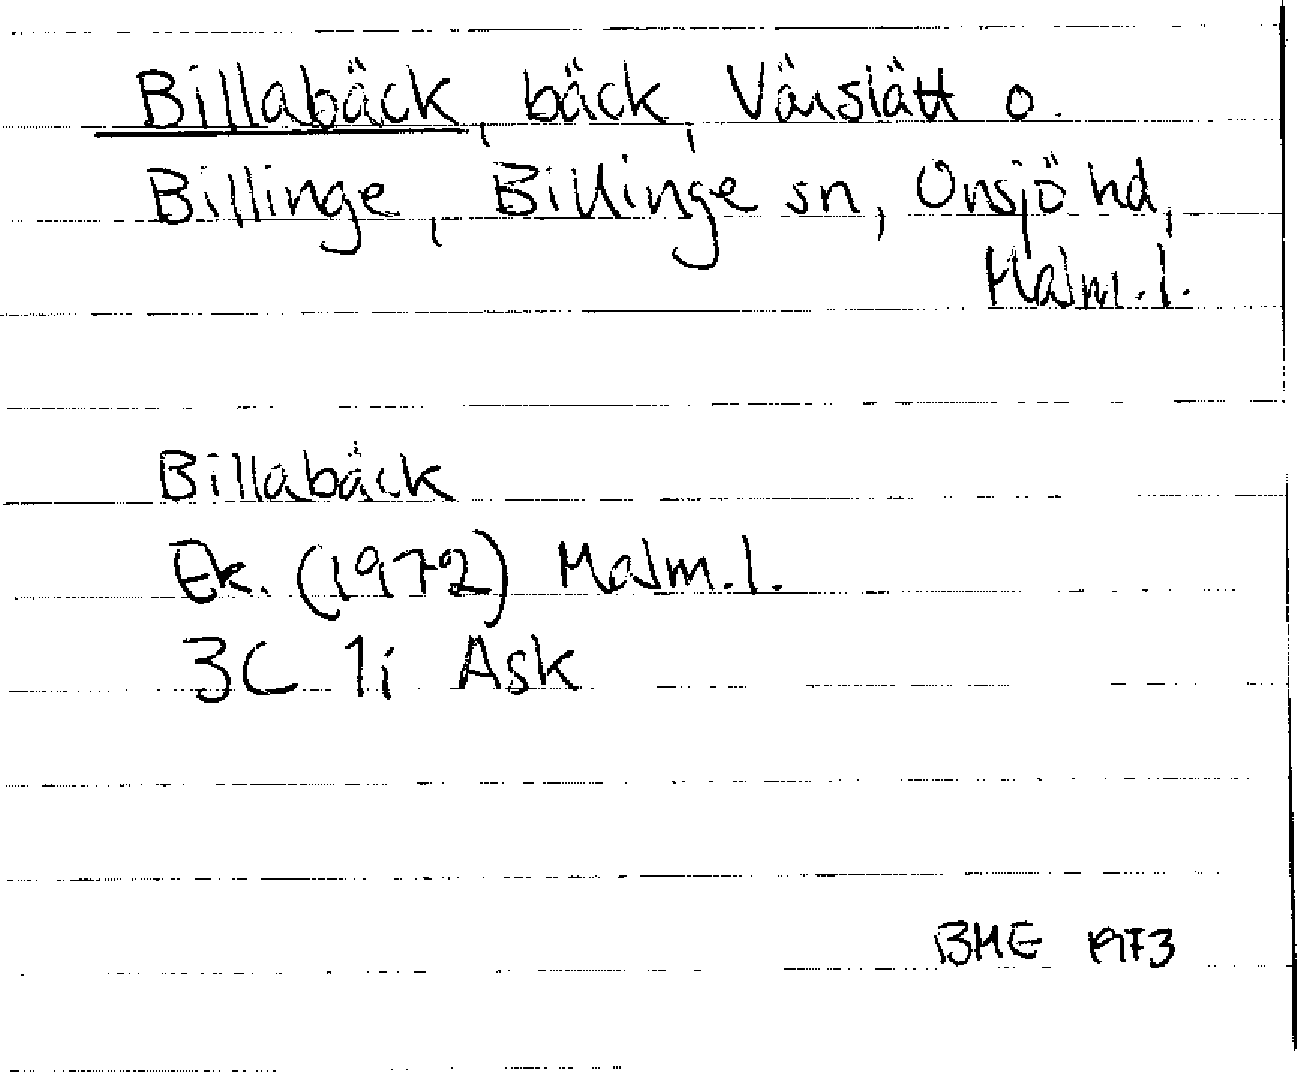 Billabäck, bäck, Värslätt o.
Billinge, Billinge sn, Onsjö hd,
Malm.l.
Billabäck
Ek. (1972) Malm.l.
3C 1i Ask
BME 1973